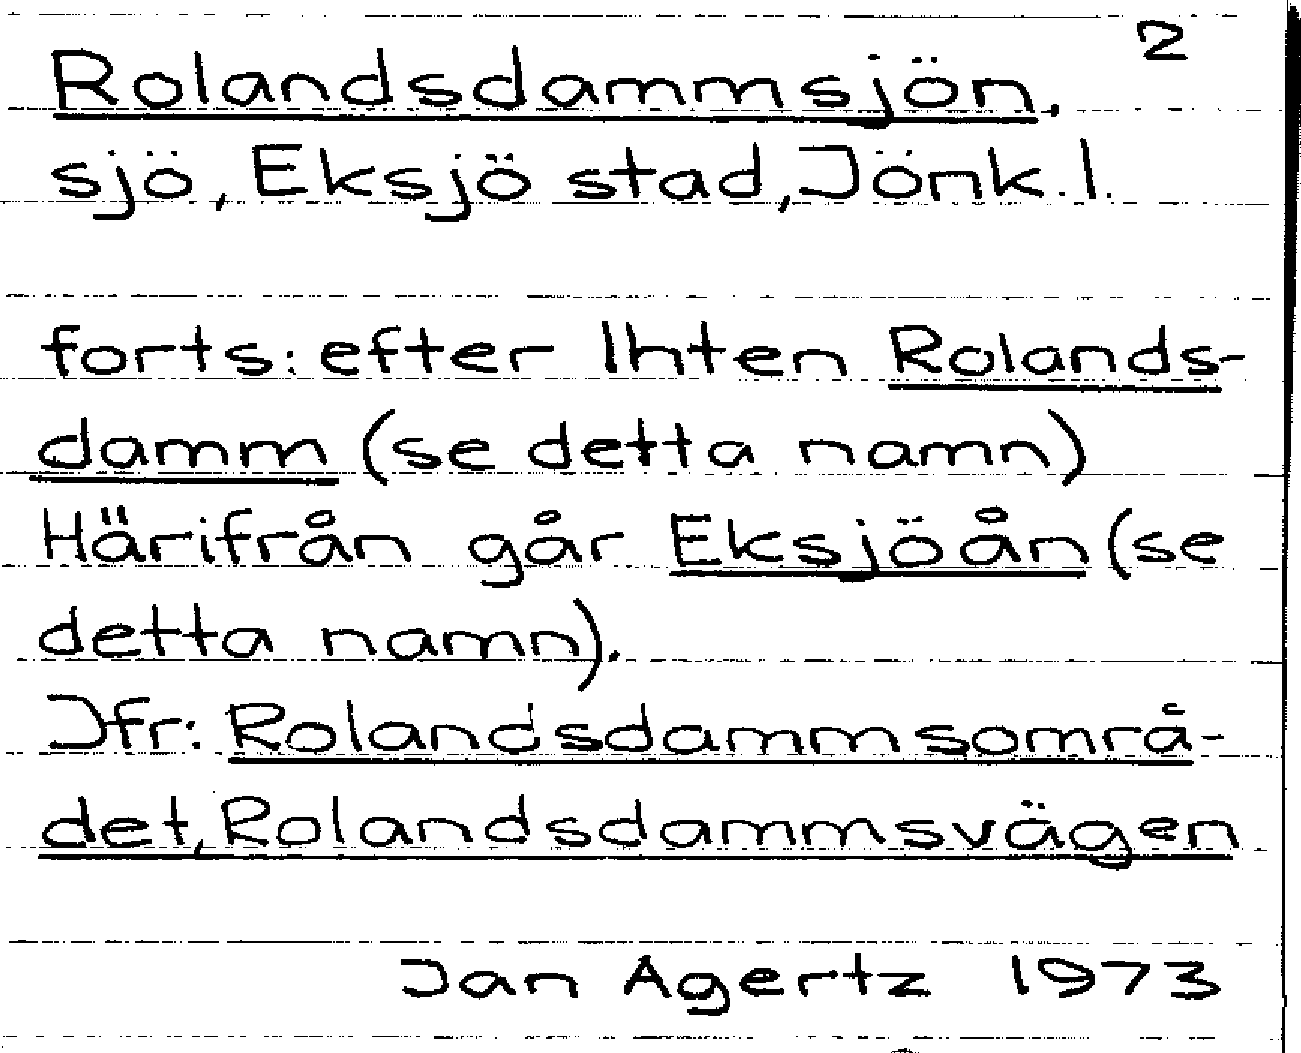 2
Rolandsdammsjön,
sjö, Eksjö stad, Jönk. l.
forts: efter lhten Rolands-
damm (se detta namn)
Härifrån går Eksjöån (se
detta namn).
Jfr: Rolandsdammsområ-
det, Rolandsdammsvägen
Jan Agertz 1973